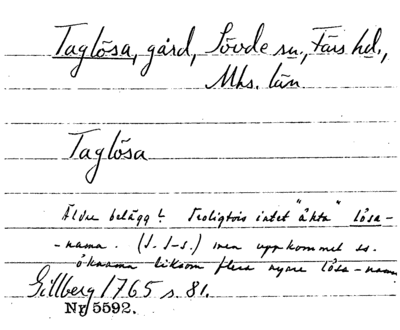 Taglösa, gård, Sövde sn., Färs hd.,
Mhs. län
Taglösa
Äldre belägg? Troligtvis intet "äkta" lösa-
-namn. (J. S-s.) men uppkommet ss.
öknamn liksom flera nyare lösa-namn
Gillberg 1765 s. 81.
Ny 5592.